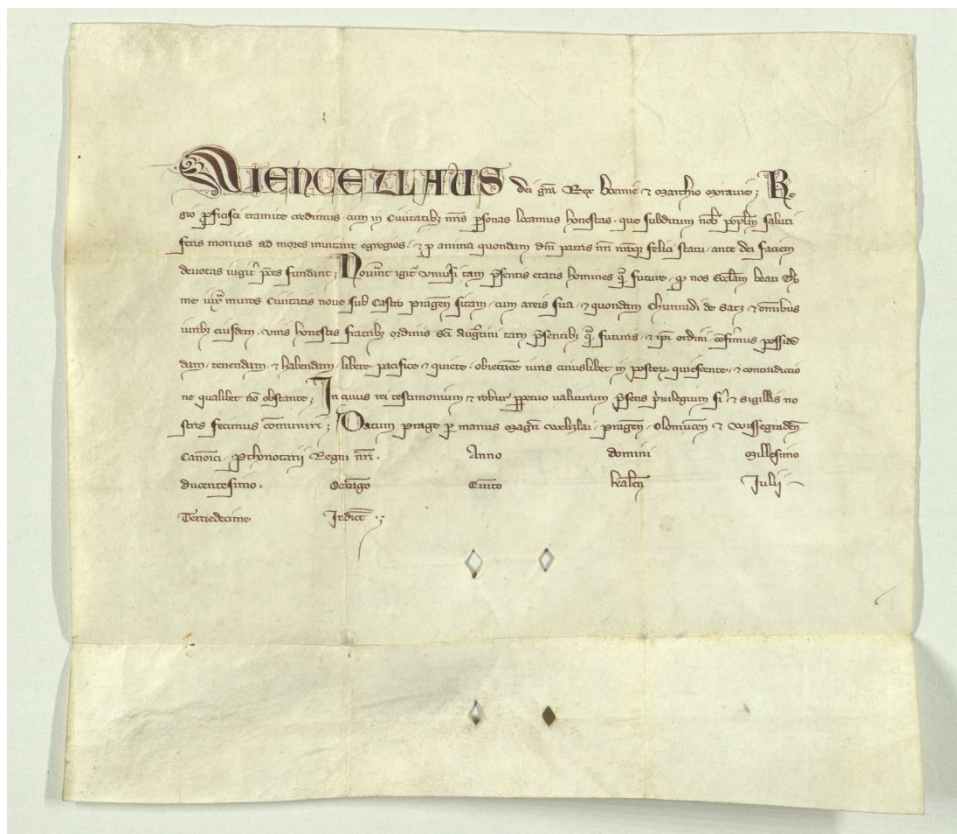 WENCEZLAUS dei gra Rex Boemie ⁊ Marchio Moravie; Re
gio pficisci tramite credimus, cum in Civitatibz nris psonas locamus honestas, que subditum nob pplm saluti
feris monitis ad mores invitant egregios, ⁊ p anima quondam dni patris nri nroqz felici statu, ante dei faciem
devotas iugit pces fundant; Novint igit univsi tam psentis etatis homines q future, nos Ecclam beati Tho
me iux muros Civitatis nove sub Castro pragen sitam, cum areis sua, ⁊ quondam Chunradi de Satz ⁊ omnibus
iuribz eiusdem, viris honestis fratribz ordinis sci Augustini tam psentibz q futuris, ⁊ ipi ordini cofimus possiden
dam, tenendam, ⁊ habendam, libere, pacifice ⁊ quiete, obiectione iuris cuiuslibet in poster quiescente, ⁊ contradictio
ne qualibet no obstante; In cuius rei testimonium ⁊ robur ppetuo valiturum psens privilegium fi ⁊ sigillis no
stris fecimus comuniri; Datum prage p manus magri Welizlai, pragen, olomucen ⁊ Wissegraden
Canoici, pthonotarii Regni nri. Anno domini Millesimo
ducentesimo. Octuago Quito kaln Julij
Terciedecime Indict